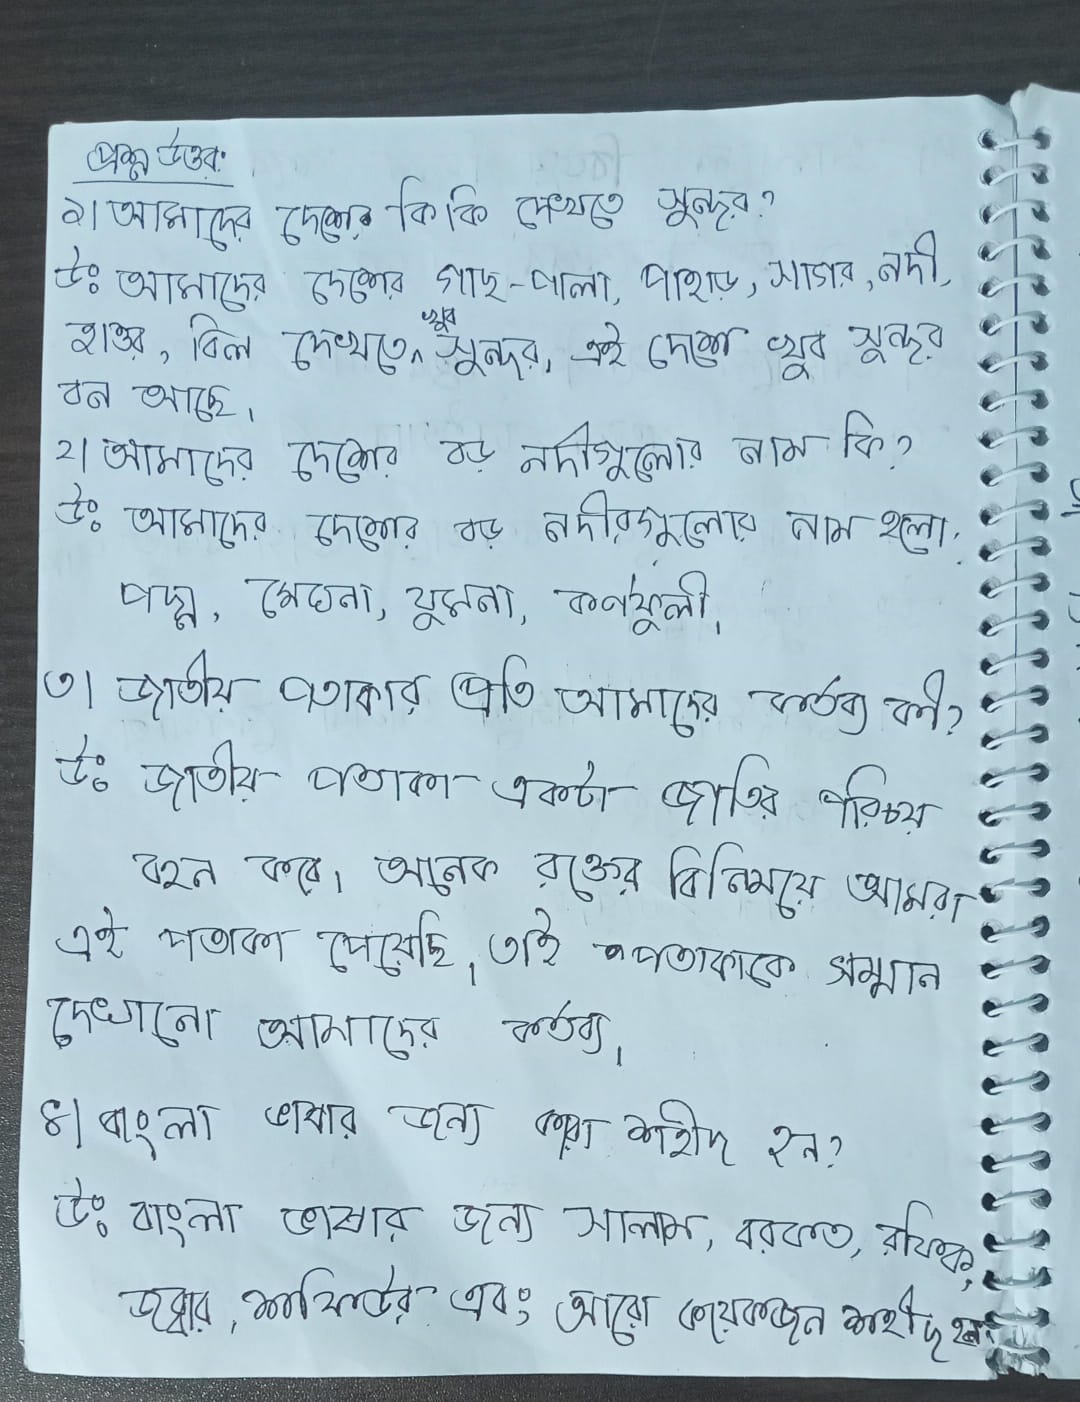 প্রশ্ন উত্তর:
১। আমাদের দেশের কি কি দেখতে সুন্দর?
উঃ আমাদের দেশের গাছ-পালা, পাহাড়, সাগর, নদী,
হাওর, বিল দেখতে খুব সুন্দর, এই দেশে খুব সুন্দর
বন আছে।
২। আমাদের দেশের বড় নদীগুলোর নাম কি?
উঃ আমাদের দেশের বড় নদীরগুলোর নাম হলো.
পদ্মা, মেঘনা, যুমনা, কর্ণফুলী।
৩। জাতীয় পতাকার প্রতি আমাদের কর্তব্য কী?
উঃ জাতীয় পতাকা একটা জাতির পরিচয়
বহন করে। অনেক রক্তের বিনিময়ে আমরা
এই পতাকা পেয়েছি। তাই পতাকাকে সম্মান
দেখানো আমাদের কর্তব্য।
৪। বাংলা ভাষার জন্য কারা শহীদ হন?
উঃ বাংলা ভাষার জন্য সালাম, বরকত, রফিক,
জব্বার, শফিউর এবং আরো কয়েকজন শহীদ হন।